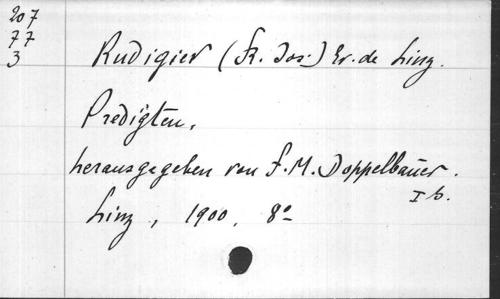 207
77
3
Rudigier (Fr. Jos.) Ev. de Linz.
Predigten,
herausgegeben von F. M. Doppelbauer.
I b.
Linz, 1900, 8º